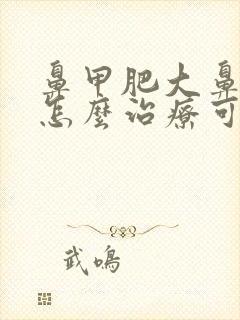 鼻甲肥大鼻
怎麼治療可
武鳴